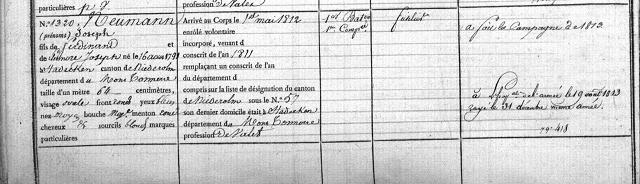 particulières
profession
N.° 1320. Neumann
(prénoms) Joseph
fils de Ferdinand et
de Joseph né le 16 aout 1791
à canton de Niederolm
département du Mont Tonnerre
taille d'un mètre 64 centimètres,
visage ovale front rond yeux bleus
nez bouche moy. menton rond
cheveux & sourcils blonds marques
particulières
Arrivé au Corps le 1er mai 1812
enrôlé volontaire
incorporé, venant d
conscrit de l'an 1811
remplaçant un conscrit de l'an
du département d
compris sur la liste de désignation du canton
de Niederolm sous le N.° 57
son dernier domicile était à
département du Mont Tonnerre
profession de Valet
1er Baton
1re Compie
fusilier
a fait la Campagne de 1813
armée le 19 août 1813
rayé le 31 décembre même année.